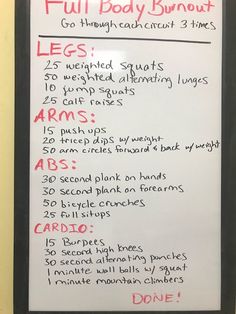 Full Body Burnout
Go through each circuit 3 times
LEGS:
25 weighted squats
50 weighted alternating lunges
10 jump squats
25 calf raises
ARMS:
15 push ups
20 tricep dips w/ weight
50 arm circles forward & back w/ weight
ABS:
30 second plank on hands
30 second plank on forearms
50 bicycle crunches
25 full situps
CARDIO:
15 Burpees
30 second high knees
30 second alternating punches
1 minute wall balls w/ squat
1 minute mountain climbers
DONE!